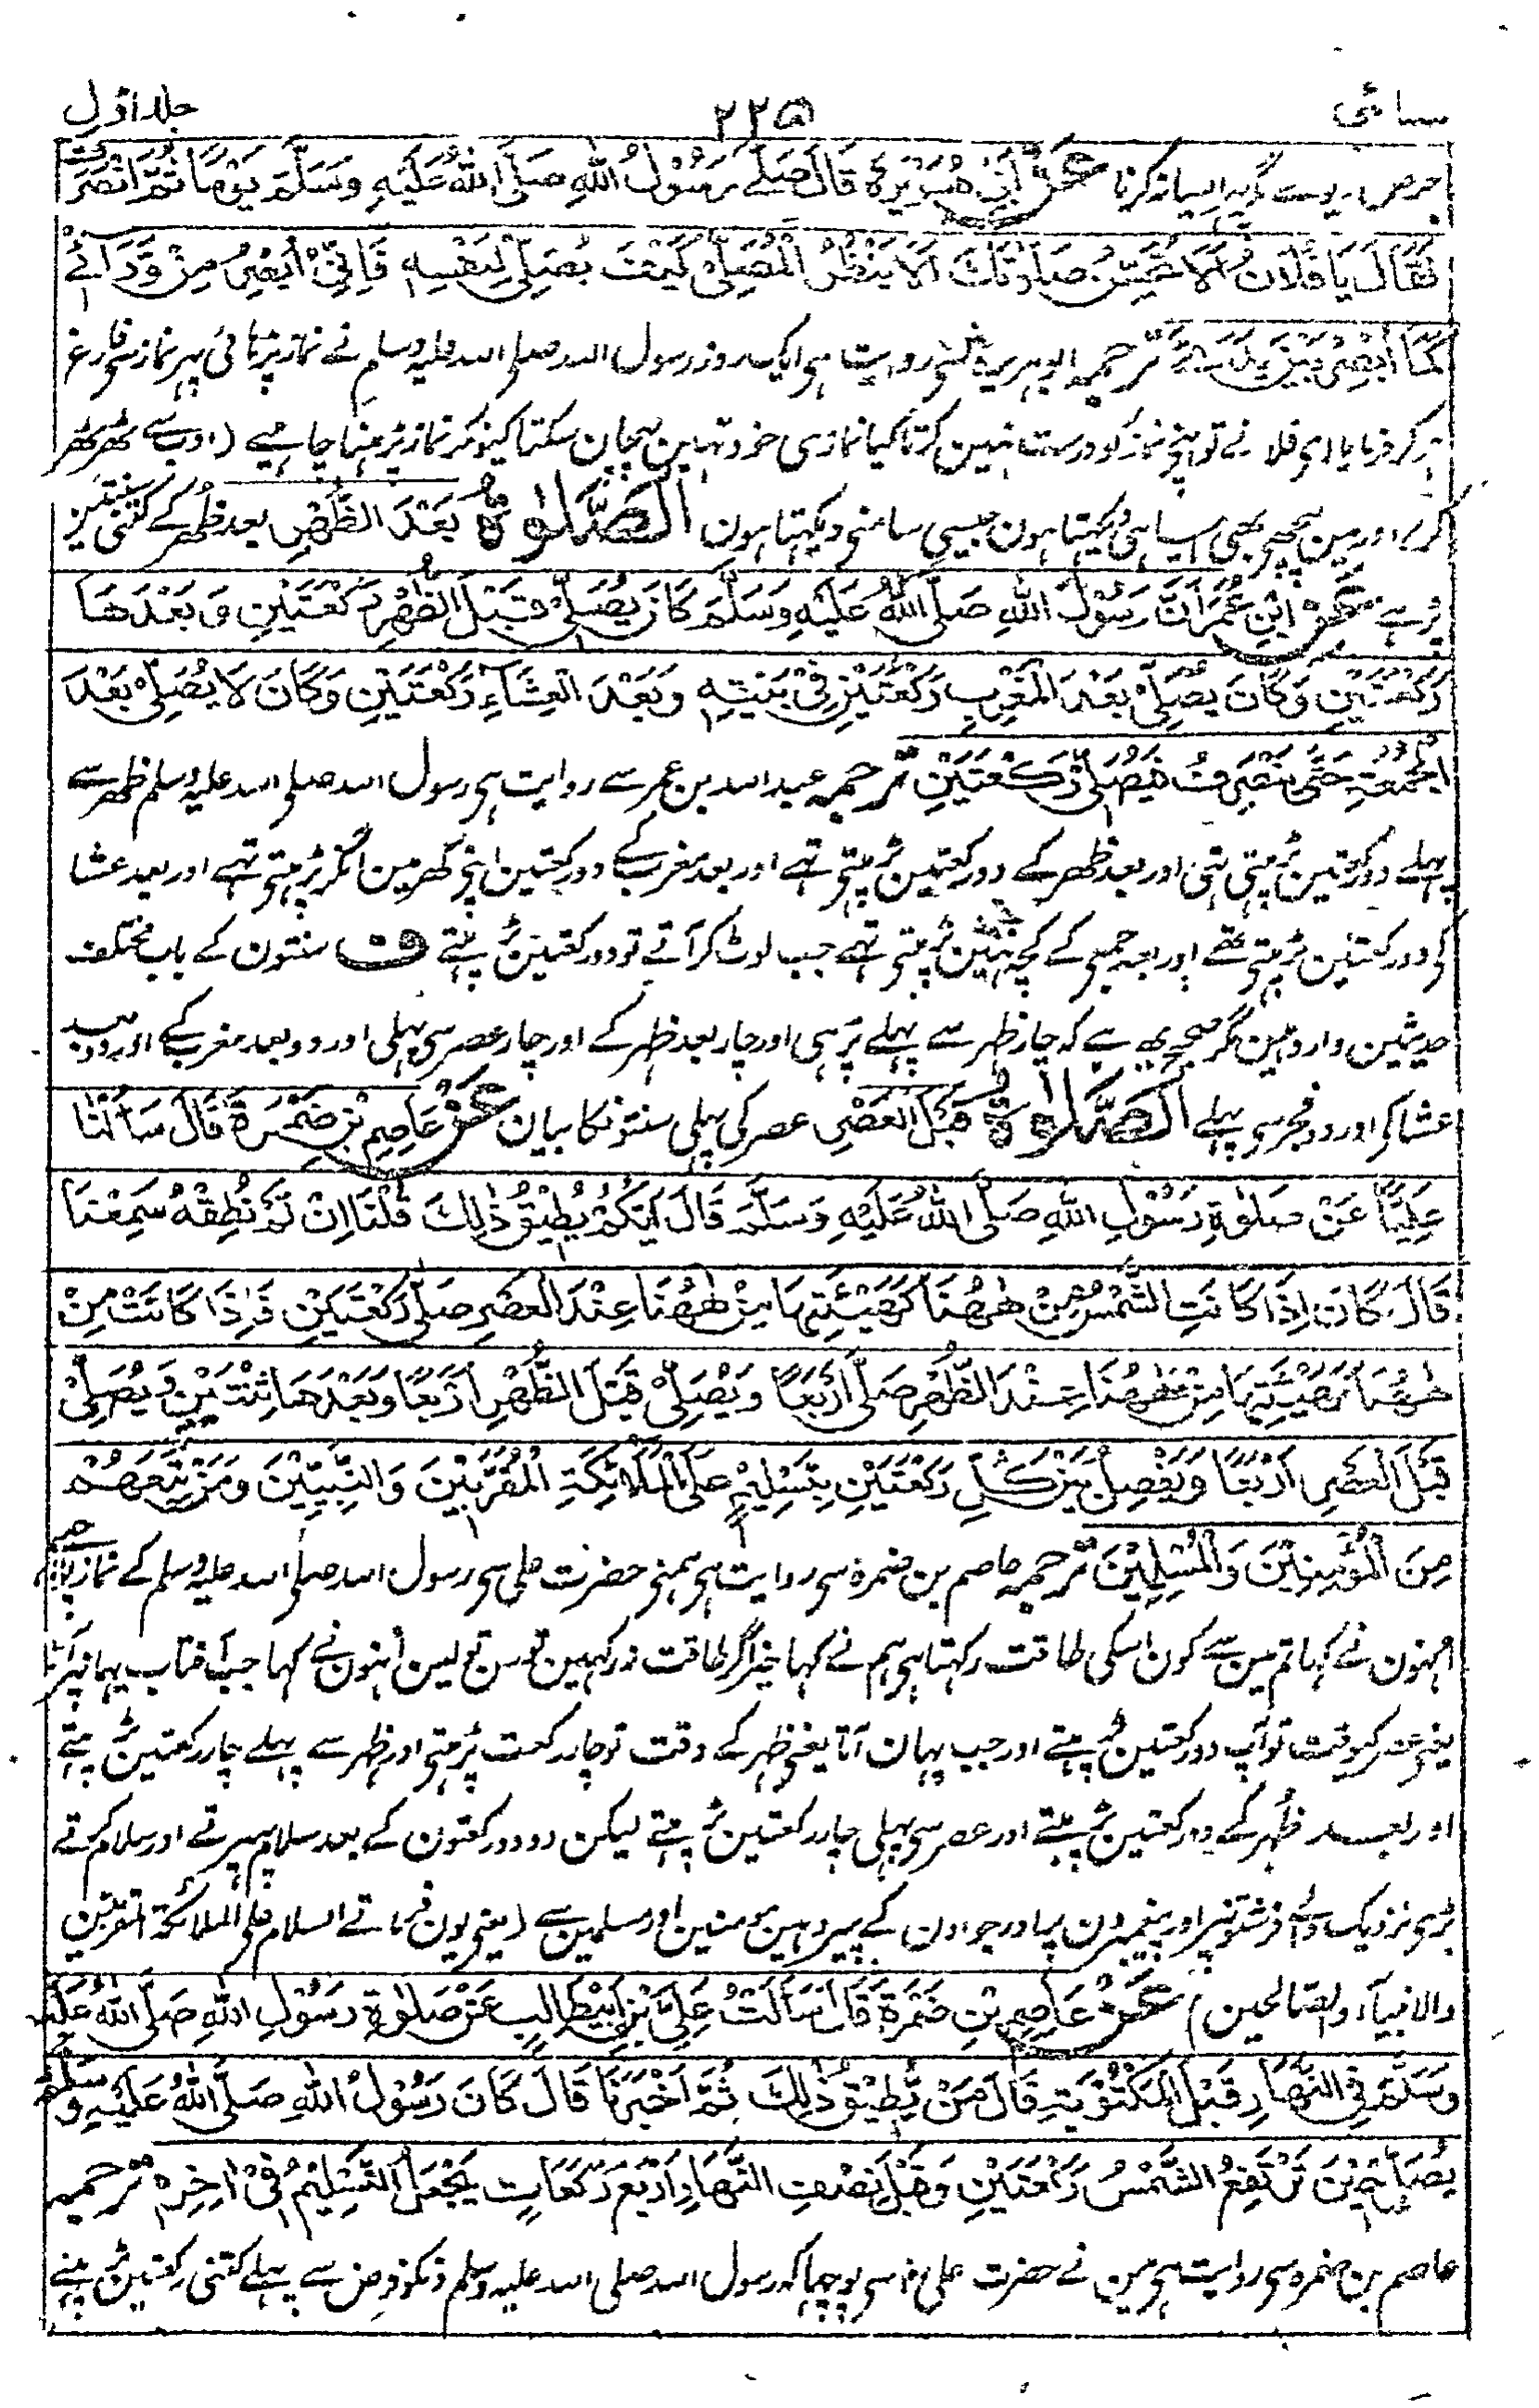 سائی ۲۲۵ جلد اول
حرص دیوے گر یہ ایسا نہ کرنا عَنْ أَبِي هُرَيْرَةَ قَالَ صَلَّى رَسُوْلُ اللّٰهِ صَلَّى اللّٰهُ عَلَيْهِ وَسَلَّمَ يَوْمًا ثُمَّ انْصَرَفَ
فَقَالَ يَا فُلَانُ أَلَا تُحَسِّنُ صَلٰوتَكَ أَلَا يَنْظُرُ الْمُصَلِّيْ كَيْفَ يُصَلِّيْ لِنَفْسِهِ فَاِنِّيْ أُبْصِرُ مِنْ وَّرَآئِيْ
كَمَا أُبْصِرُ بَيْنَ يَدَيَّ ترجمہ ابوہریرۃ سے روایت ہی ایک روز رسول اللہ صلی اللہ علیہ وسلم نے نماز پڑہائی پہر نماز سی فارغ
ہو کر فرمایا ای فلانے تو اپنی نماز کو درست نہین کرتا کیا نمازی خود نہین پہچان سکتا کیونکر نماز پڑہنا چاہیے (ادب سے ٹھر ٹھر
کر) اور مین پیچھی بھی ایسا ہی دیکہتا ہون جیسی سامنی دیکہتا ہون الصَّلٰوةُ بَعْدَ الظُّهْرِ بعد ظہر کے کتنی سنتین
پڑہے عَنِ ابْنِ عُمَرَ اَنَّ رَسُوْلَ اللّٰهِ صَلَّى اللّٰهُ عَلَيْهِ وَسَلَّمَ كَانَ يُصَلِّيْ قَبْلَ الظُّهْرِ رَكْعَتَيْنِ وَبَعْدَهَا
رَكْعَتَيْنِ وَكَانَ يُصَلِّيْ بَعْدَ الْمَغْرِبِ رَكْعَتَيْنِ فِيْ بَيْتِهِ وَبَعْدَ الْعِشَاءِ رَكْعَتَيْنِ وَكَانَ لَا يُصَلِّيْ بَعْدَ
الْجُمُعَةِ حَتّٰى يَنْصَرِفَ فَيُصَلِّيْ رَكْعَتَيْنِ ترجمہ عبداللہ بن عمر سے روایت ہی رسول اللہ صلی اللہ علیہ وسلم ظہر سے
پہلے دو رکعتین پڑہتی تہی اور بعد ظہر کے دو رکعتین پڑہتی تہے اور بعد مغرب کے دو رکعتین اپنی گھر مین آکر پڑہتی تہے اور بعد عشا
کی دو رکعتین پڑہتی تھے اور بعد جمعی کے کچھ نہین پڑہتی تہے جب لوٹ کر آتے تو دو رکعتین پڑہتے ف سنتون کے باب مختلف
حدیثین وارد ہین مگر صحیح یہ ہے کہ چار ظہر سے پہلے پڑہی اور چار بعد ظہر کے اور چار عصر سی پہلی اور دو بعد مغرب کے اور دو بعد
عشا کی اور دو فجر سی پہلے الصَّلٰوةُ قَبْلَ الْعَصْرِ عصر کی پہلی سنتونکا بیان عَنْ عَاصِمِ بْنِ ضَمْرَةَ قَالَ سَأَلْنَا
عَلِيًّا عَنْ صَلٰوةِ رَسُوْلِ اللّٰهِ صَلَّى اللّٰهُ عَلَيْهِ وَسَلَّمَ قَالَ اَيُّكُمْ يُطِيْقُ ذٰلِكَ قُلْنَا اِنْ لَمْ نُطِقْهُ سَمِعْنَا
قَالَ كَانَ اِذَا كَانَتِ الشَّمْسُ مِنْ هٰهُنَا كَهَيْئَتِهَا مِنْ هٰهُنَا عِنْدَ الْعَصْرِ صَلّٰى رَكْعَتَيْنِ فَاِذَا كَانَتْ مِنْ
هٰهُنَا كَهَيْئَتِهَا مِنْ هٰهُنَا عِنْدَ الظُّهْرِ صَلّٰى اَرْبَعًا وَيُصَلِّيْ قَبْلَ الظُّهْرِ اَرْبَعًا وَبَعْدَهَا ثِنْتَيْنِ وَيُصَلِّيْ
قَبْلَ الْعَصْرِ اَرْبَعًا وَيَفْصِلُ بَيْنَ كُلِّ رَكْعَتَيْنِ بِتَسْلِيْمٍ عَلَى الْمَلَائِكَةِ الْمُقَرَّبِيْنَ وَالنَّبِيِّيْنَ وَمَنْ تَبِعَهُمْ
مِنَ الْمُؤْمِنِيْنَ وَالْمُسْلِمِيْنَ ترجمہ عاصم بن ضمرہ سی روایت ہی ہمنی حضرت علی سی رسول اللہ صلی اللہ علیہ وسلم کے نماز پوچھی
اُنہون نے کہا تم مین سے کون اسکی طاقت رکہتا ہی ہم نے کہا خیر اگر طاقت نہ رکہین تو سن تو لین اُنہون نے کہا جب آفتاب یہانپر آتا
یعنی عصر کیوقت تو آپ دو رکعتین پڑہتے اور جب یہان آتا یعنی ظہر کے وقت تو چار رکعت پڑہتی اور ظہر سے پہلے چار رکعتین پڑہتے
اور بعد ظہر کے دو رکعتین پڑہتے اور عصر سی پہلی چار رکعتین پڑہتے لیکن دو دو رکعتون کے بعد سلام پہیرتے اور سلام کرتے
بڑی نزدیک والے فرشتونپر اور پیغمبرون پر اور جو اون کے پیرو ہین مومنین اور مسلمین سے (یعنی یون فرماتے السلام علی الملائکۃ المقربین
والانبیآء والصالحین) عَنْ عَاصِمِ بْنِ ضَمْرَةَ قَالَ سَأَلْتُ عَلِيَّ بْنَ اَبِيْطَالِبٍ عَنْ صَلٰوةِ رَسُوْلِ اللّٰهِ صَلَّى اللّٰهُ عَلَيْهِ
وَسَلَّمَ فِي النَّهَارِ قَبْلَ الْمَكْتُوْبَةِ قَالَ مَنْ يُّطِيْقُ ذٰلِكَ ثُمَّ اَخْبَرَنَا قَالَ كَانَ رَسُوْلُ اللّٰهِ صَلَّى اللّٰهُ عَلَيْهِ وَسَلَّمَ
يُصَلِّيْ حِيْنَ تَرْتَفِعُ الشَّمْسُ رَكْعَتَيْنِ وَقَبْلَ نِصْفِ النَّهَارِ اَرْبَعَ رَكَعَاتٍ يَجْعَلُ التَّسْلِيْمَ فِيْ اٰخِرِهِ ترجمہ
عاصم بن ضمرہ سی روایت ہی مین نے حضرت علی سی پوچہا کہ رسول اللہ صلی اللہ علیہ وسلم دنکو فرض سے پہلے کتنی رکعتین پڑہتے